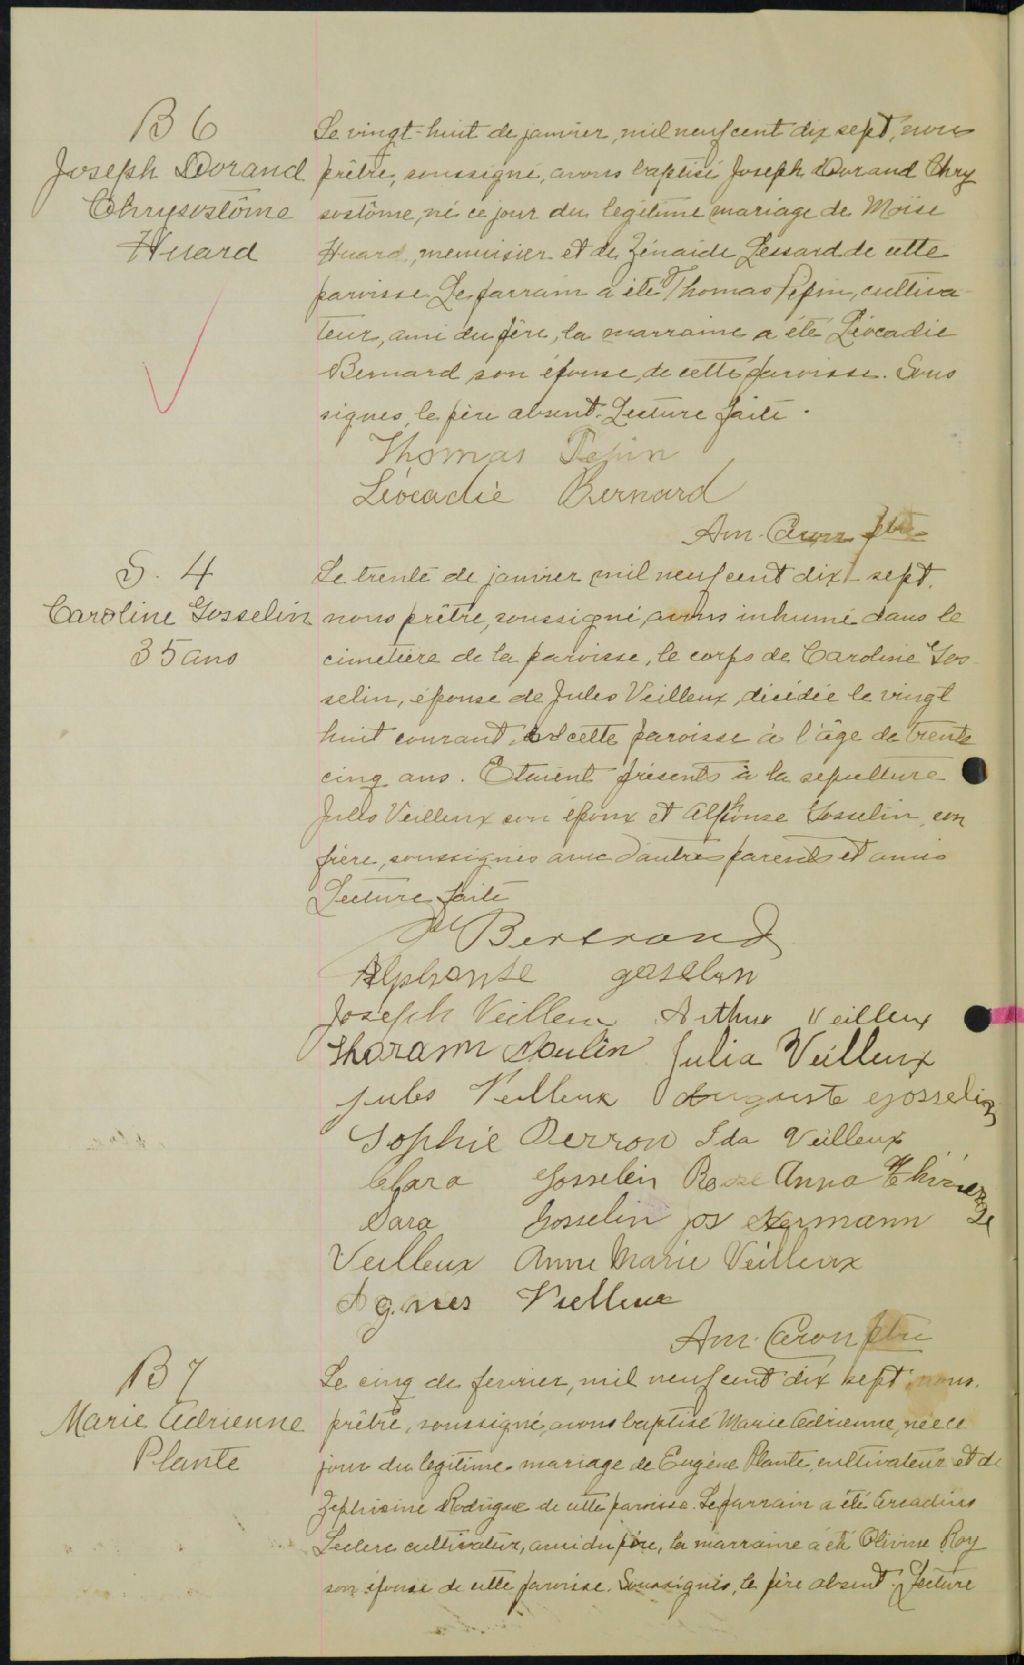 B 6
Joseph Dorand
Chrysostôme
Huard
Le vingt-huit de janvier, mil neuf cent dix sept, nous
prêtre, soussigné, avons baptisé Joseph Dorand Chry
sostôme, né ce jour du légitime mariage de Moïse
Huard, menuisier et de Zénaïde Lessard de cette
paroisse. Le parrain a été Thomas Pepin, cultiva-
teur, ami du père, la marraine a été Léocadie
Bernard son épouse, de cette paroisse. Sous
signés, le père absent. Lecture faite.
Thomas Pepin
Léocadie Bernard
Am. Caron ptre
S. 4
Caroline Gosselin
35 ans
Le trente de janvier mil neuf cent dix-sept,
nous prêtre, soussigné, avons inhumé dans le
cimetière de la paroisse, le corps de Caroline Gos-
selin, épouse de Jules Veilleux, décédée le vingt
huit courant, cette paroisse à l'âge de trente
cinq ans. Etaient présents à la sépulture
Jules Veilleux son époux et Alphonse Gosselin, son
frère, soussignés avec d'autres parents et amis
Lecture faite
Bertrand
Alphonse goselin
Joseph Veilleux Arthur Veilleux
Poulin Julia Veilleux
Jules Veilleux Auguste Gosselin
Sophie Perron Ida Veilleux
Clara Gosselin Rose Anna Thivierge
Sara Gosselin jos Hermann
Veilleux Anne Marie Veilleux
Agnes Veilleux
Am. Caron ptre
B 7
Marie Adrienne
Plante
Le cinq de fevrier, mil neuf cent dix sept, nous,
prêtre, soussigné, avons baptisé Marie Adrienne, née ce
jour du légitime mariage de Eugène Plante, cultivateur et de
Zephirine Rodrigue de cette paroisse. Le parrain a été Arcadius
Leclerc cultivateur, ami du père, la marraine a été Olivine Roy
son épouse de cette paroisse. Soussignés, le père absent. Lecture